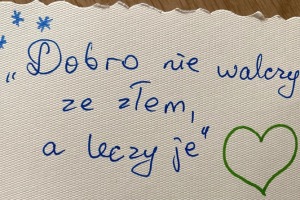 „Dobro nie walczy
ze złem,
a leczy je"